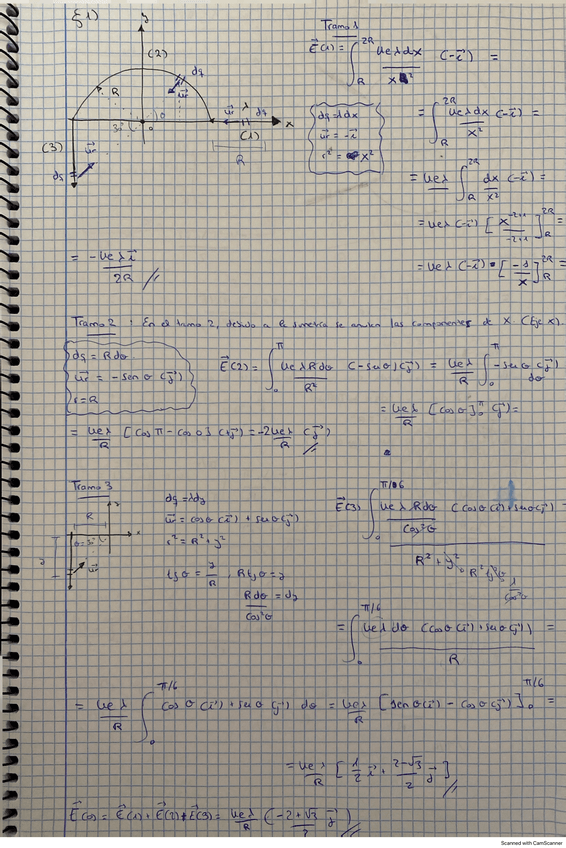 ξ1)
y
(2)
dq
R
ur
λ
dq
x
(3)
30
θ
o
(1)
R
ur
dq
Tramo 1
E(1) = ∫_R^2R ke λ dx / x² (-i) =
dq = λdx
ur = -i
r² = x²
= ∫_R^2R ke λ dx / x² (-i) =
= ke λ ∫_R^2R dx / x² (-i) =
= ke λ (-i) [ x^-2+1 / -2+1 ]_R^2R =
= ke λ (-i) · [ -1 / x ]_R^2R =
= -ke λ i / 2R //
Tramo 2 · En el tramo 2, debido a la simetría se anulan las componentes de x (Eje x).
dq = Rdθ
ur = -sen θ (j)
r = R
E(2) = ∫_0^π ke λ R dθ / R² (-senθ)(j) = ke λ / R ∫_0^π -senθ (j) dθ
= ke λ / R [cosθ]_0^π (j) =
= ke λ / R [cos π - cos 0] (j) = -2 ke λ / R (j) //
Tramo 3
R
x
y
ur
dq = λdy
ur = cosθ (i) + senθ (j)
r² = R² + y²
tgθ = y / R , R tgθ = y
Rdθ / cos²θ = dy
E(3) ∫_0^π/6 ke λ R dθ / cos²θ (cosθ(i) + senθ(j)) =
R² + y²
= ∫_0^π/6 ke λ dθ (cosθ(i) + senθ(j)) / R =
= ke λ / R ∫_0^π/6 cosθ (i) + senθ (j) dθ = ke λ / R [senθ(i) - cosθ(j)]_0^π/6 =
= ke λ / R [ 1/2 i + 2-√3 / 2 j ] //
E(o) = E(1) + E(2) + E(3) = ke λ / R ( -2+√3 / 2 j ) //
Scanned with CamScanner